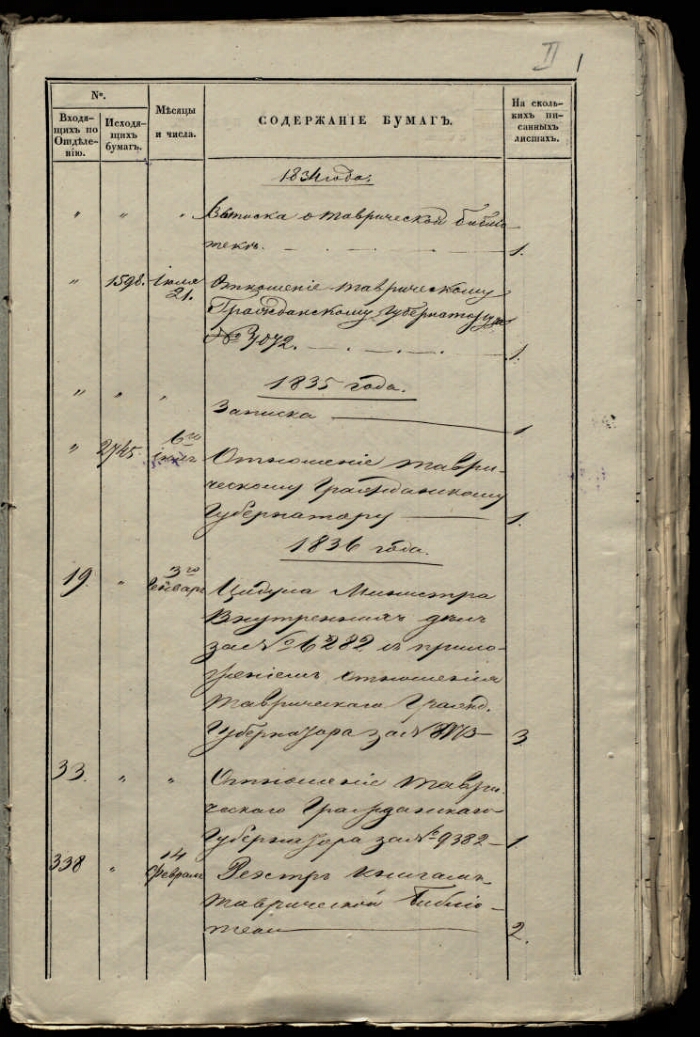 II 1
№.
Входя-
щихъ по
Отдѣле-
нію.
Исходя-
щихъ
бумагъ.
Мѣсяцы
и числа.
СОДЕРЖАНІЕ БУМАГЪ.
На сколь-
кихъ пи-
санныхъ
листахъ.
1834 года.
" " " Выписка о таврической библіо-
текѣ. 1.
" 1598. Іюля 21. Отношеніе таврическому
Гражданскому Губернатору
№ 3072. 1.
1835 года.
" " " Записка 1
" 2745. 6го Отношеніе таври-
ческому Гражданскому
Губернатору 1.
1836 года.
19. " 3го Генваря Министра
Внутреннихъ дѣлъ
за № 6282 съ прило-
женіемъ отношенія
таврическаго Гражд.
Губернатора за № 3
33. " " Отношеніе таври-
ческаго Гражданскаго
Губернатора за № 9382 1
338 " 14 Февраля Реэстръ книгамъ
таврической библіо-
теки 2.